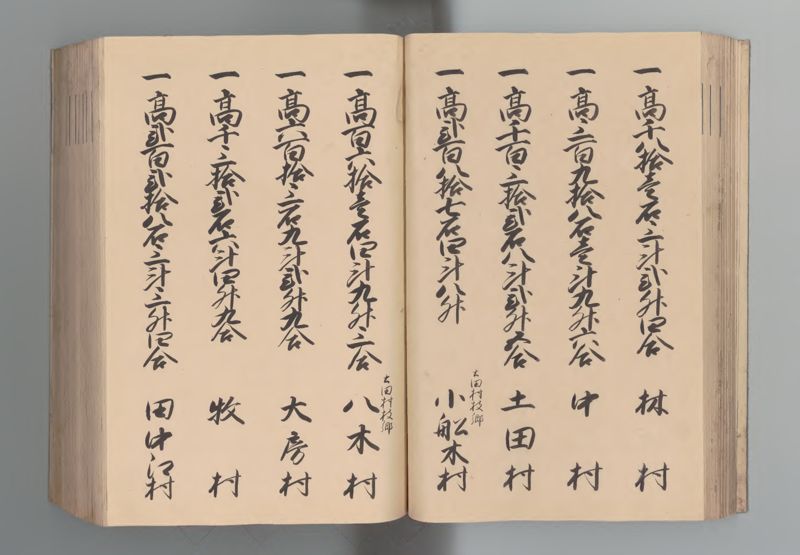 一高千八拾壱石三斗弐升四合 林村
一高三百九拾八石壱斗九升六合 中村
一高千百三拾弐石八斗弐升五合 土田村
一高弐百八拾七石四斗八升
土田村枝郷
小船木村
一高百六拾壱石四斗九升三合
土田村枝郷
八木村
一高六百拾三石九斗弐升九合 大房村
一高千三拾弐石六斗四升九合 牧村
一高弐百弐拾八石三斗三升四合 田中江村